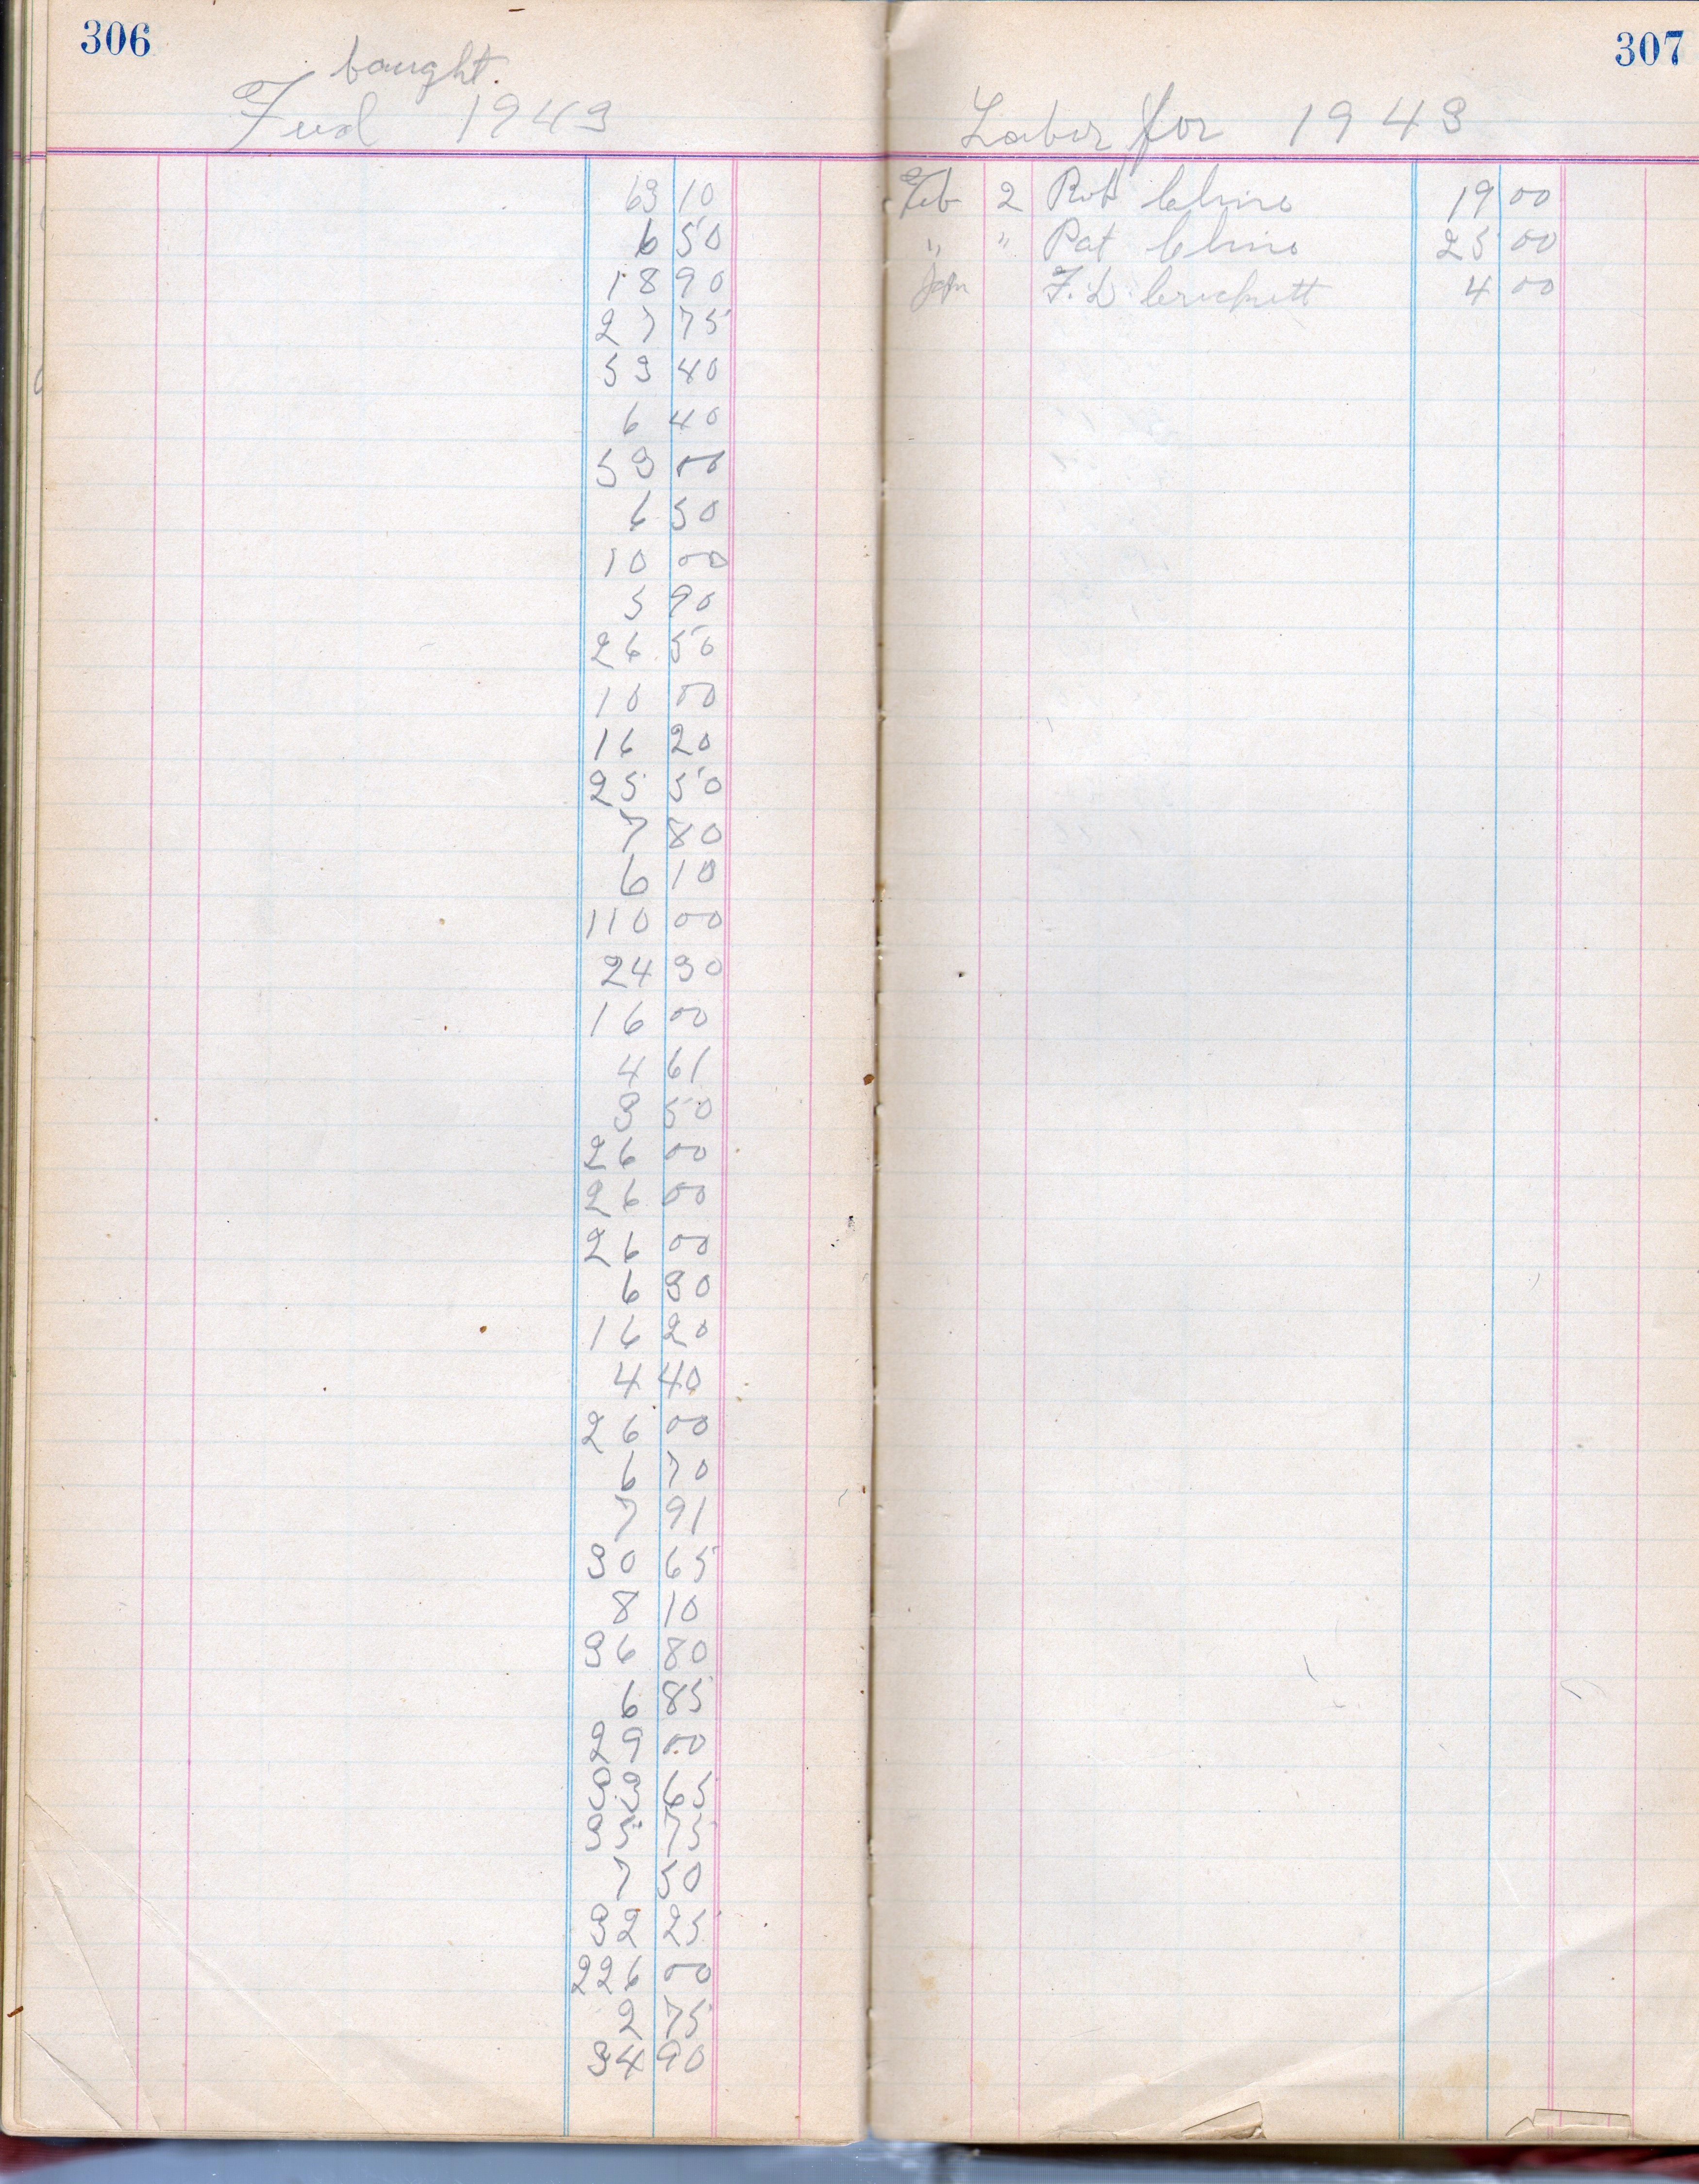 306
bought.
Fued 1943
63 10
6 50
18 90
27 75
53 40
6 40
53 00
6 50
10 00
5 90
26 50
10 00
16 20
25 50
7 80
6 10
110 00
24 30
16 00
4 61
3 50
26 00
26 00
26 00
6 30
16 20
4 40
26 00
6 70
7 91
30 65
8 10
36 80
6 85
29 00
33 65
35 75
7 50
32 25
226 00
2 75
34 90
307
Labor for 1943
Feb 2 Rob Cline 19 00
" " Pat Cline 25 00
Jan F. D. 4 00